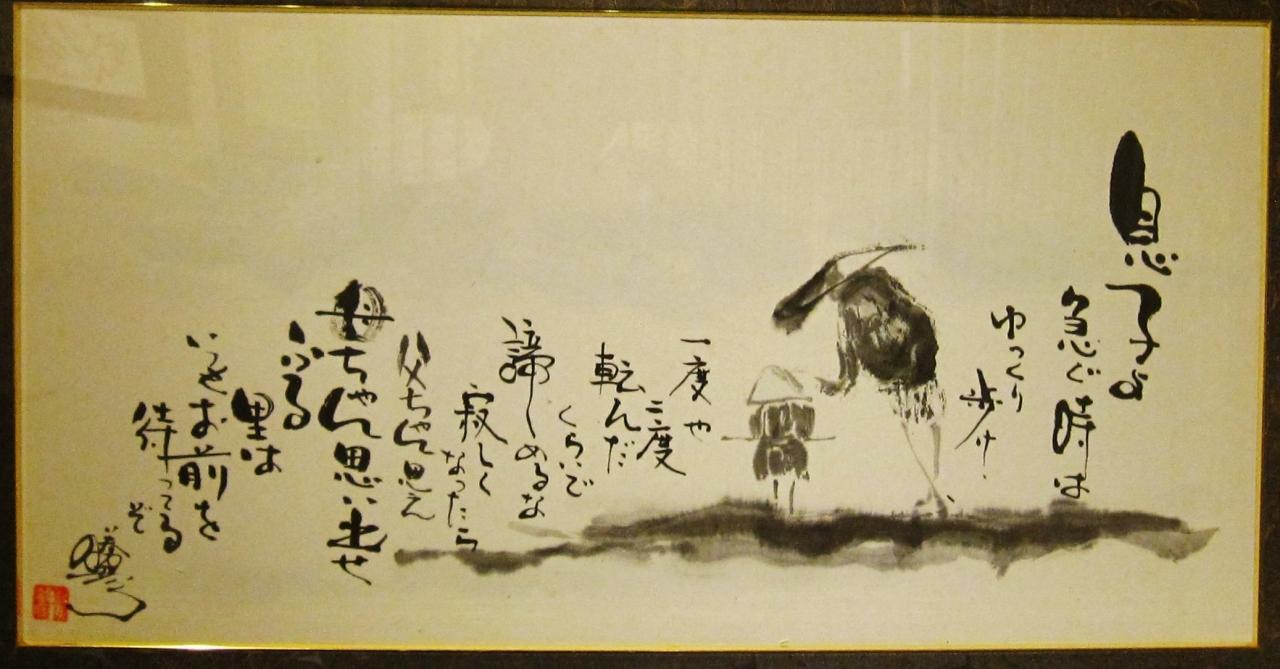 息子よ
急ぐ時は
ゆっくり
歩け
一度や
二度
転んだ
くらいで
諦しめるな
寂しく
なったら
父ちゃん思え
母ちゃん思い出せ
いる
里は
いつもお前を
待ってる
ぞ